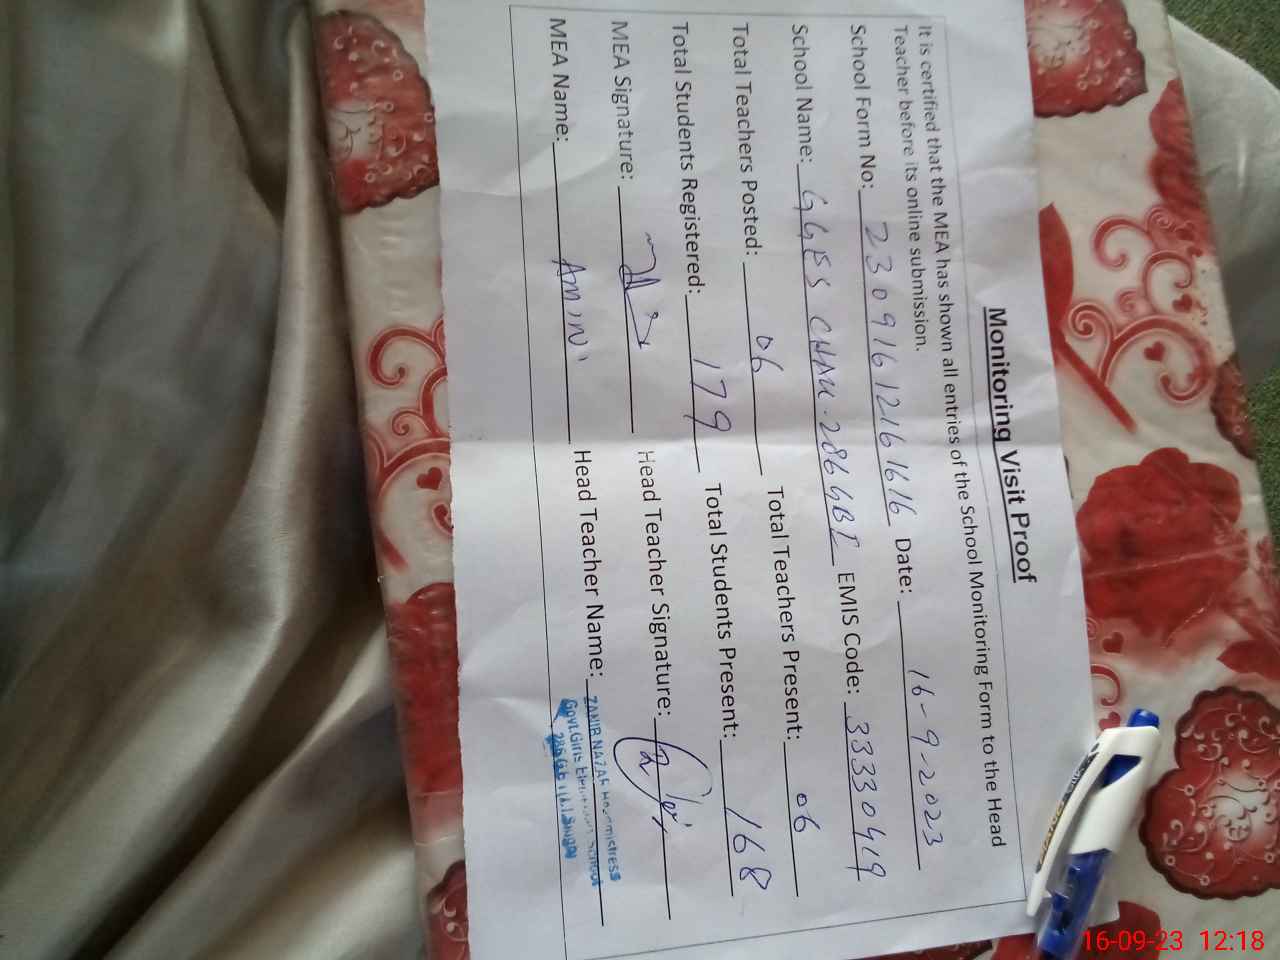 Monitoring Visit Proof
It is certified that the MEA has shown all entries of the School Monitoring Form to the Head
Teacher before its online submission.
School Form No: 23091612161616 Date: 16-9-2023
School Name: GGES CHAK.286GBI EMIS Code: 33330419
Total Teachers Posted: 06 Total Teachers Present: 06
Total Students Registered: 179 Total Students Present: 168
MEA Signature: Head Teacher Signature:
MEA Name: AMIN Head Teacher Name: ZAHIR NAZAR Headmistress
Govt.Girls Elementary School
286 Gb
16-09-23 12:18